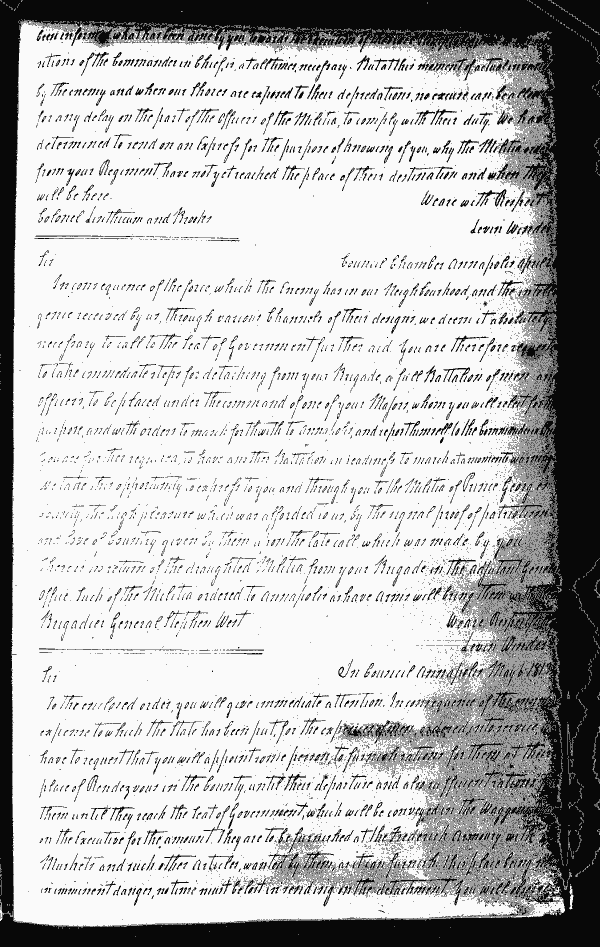 been informed what has been done by you towards the execution of
ntions of the Commander in Chief, is, at all times, necessary. But at this moment of actual
by the enemy and when our Shores are exposed to their depredations, no excuse can be
for any delay on the part of the Officers of the Militia, to comply with their duty. We have
determined to send on an Express for the purpose of knowing of you, why the Militia
from your Regiment have not yet reached the place of their destination and when they
will be here. We are with Respect
Colonel Linthicum and Brooks Levin Winder
Sir Council Chamber Annapolis April
In consequence of the force, which the Enemy has in our Neighbourhood, and the
gence received by us, through various Channels of their designs, we deem it absolutely
necessary to call to the Seat of Government further aid. You are therefore
to take immediate steps for detaching from your Brigade, a full Battalion of men and
officers, to be placed under the command of one of your Majors, whom you will select for
purpose, and with orders to march forthwith to Annapolis, and report himself to the Commander
You are further required, to have another Battalion in readiness to march at a moments warning
We take this opportunity to express to you and through you to the Militia of Prince George
County, the high pleasure which was afforded to us, by the signal proof of patriotism
and love of Country given by them upon the late call, which was made by you
There is no return of the draughted Militia, from your Brigade in the adjutant
office. Such of the Militia ordered to Annapolis as have arms will bring them with
Brigadier General Stephen West We are Respectfully
Levin Winder
Sir In Council Annapolis May 6 181
To the enclosed order, you will give immediate attention. In consequence of the
expense to which the State has been put, for the
have to request that you will appoint some person, to furnish rations for them at the
place of Rendezvous in the County, until their departure and also sufficient rations
them until they reach the Seat of Government, which will be conveyed in the Waggons
on the Executive for the amount. They are to be furnished at the Frederick Armory with
Muskets and such other Articles, wanted by them, as it can furnish. This place being
in imminent danger, no time must be lost in sending in the detachment. You will